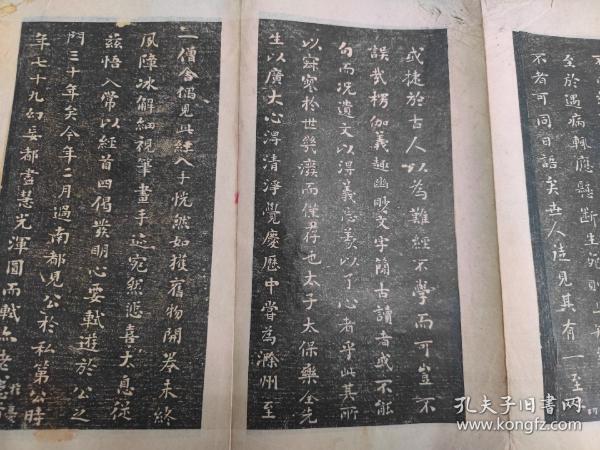 不者可同日語矣世人徒見其有一至
至於遇病輒應懸斷生死則與
或捷於古人以為難經不學而可豈不
誤哉楞伽義趣幽眇文字簡古讀者或不能
句而况遺文以得義忘義以了心者乎此其所
以寂寥於世幾廢而僅存也太子太保樂全先
生以廣大心得清淨覺慶歷中嘗為滁州至
一僧舍偶見此經入手恍然如獲舊物開卷未終
夙障冰解細視筆畫手迹宛然悲喜太息從
茲悟入常以經首四偈發明心要軾遊於公之
門三十年矣今年二月過南都見公於私第公時
年七十九幻妄都盡慧光渾圓而軾亦老
孔夫子旧书网
www.kongfz.com